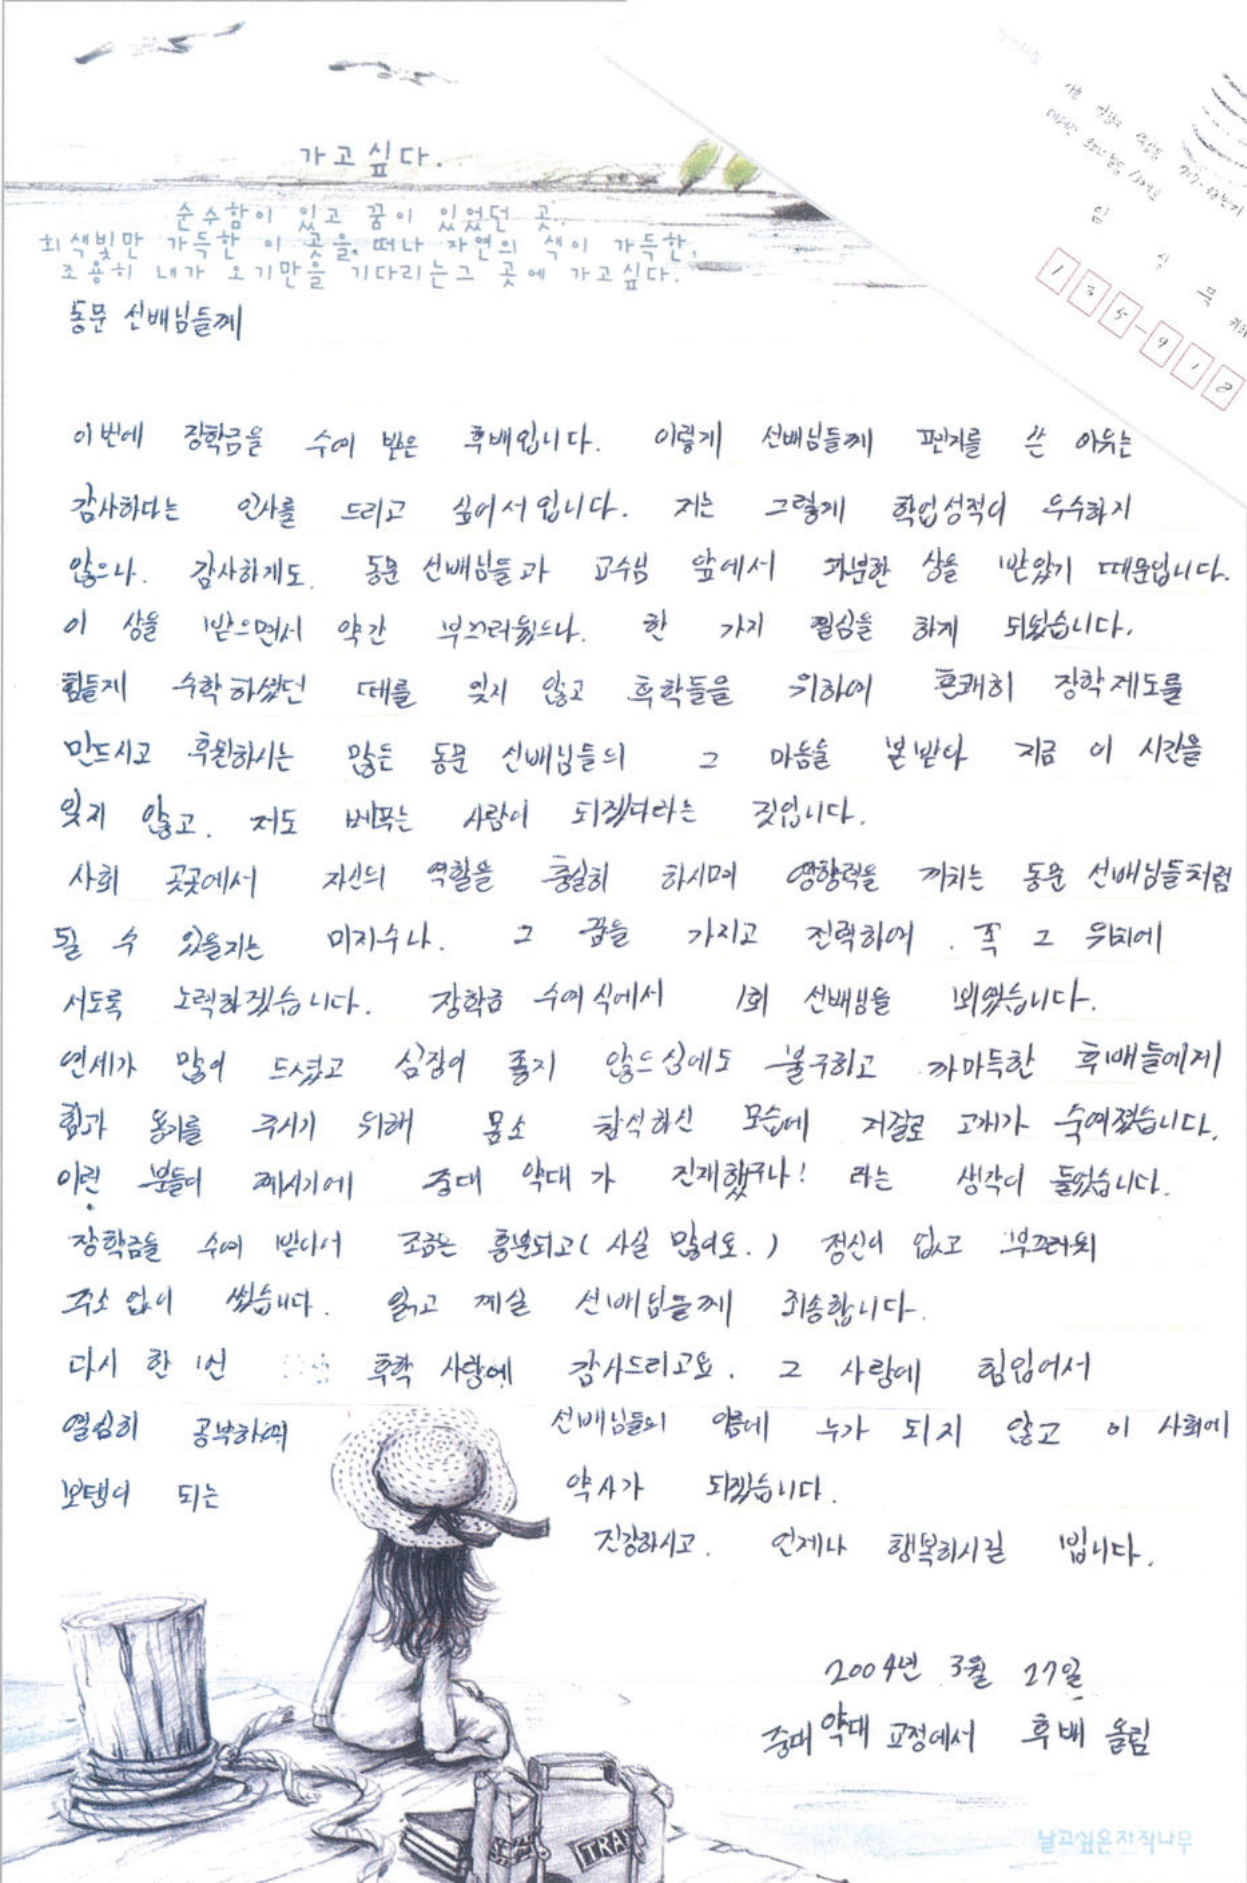 가고싶다.
순수함이 있고 꿈이 있었던 곳.
회색빛만 가득한 이 곳을 떠나 자연의 색이 가득한,
조용히 내가 오기만을 기다리는그 곳에 가고싶다.
임
135-912
동문 선배님들께
이번에 장학금을 수여 받은 후배입니다. 이렇게 선배님들께 편지를 쓴 이유는
감사하다는 인사를 드리고 싶어서 입니다. 저는 그렇게 학업성적이 우수하지
않으나. 감사하게도. 동문 선배님들과 교수님 앞에서 과분한 상을 받았기 때문입니다.
이 상을 받으면서 약간 부끄러웠으나. 한 가지 결심을 하게 되었습니다.
힘들게 수학하셨던 때를 잊지 않고 후학들을 위하여 흔쾌히 장학제도를
만드시고 후원하시는 많은 동문 선배님들의 그 마음을 본받아 지금 이 시간을
잊지 않고. 저도 베푸는 사람이 되겠더라는 것입니다.
사회 곳곳에서 자신의 역할을 충실히 하시며 영향력을 끼치는 동문 선배님들처럼
될 수 있을지는 미지수나. 그 꿈을 가지고 전력하여. 꼭 그 위치에
서도록 노력하겠습니다. 장학금 수여식에서 1회 선배님을 뵈었습니다.
연세가 많이 드셨고 심장이 좋지 않으심에도 불구하고 까마득한 후배들에게
힘과 용기를 주시기 위해 몸소 참석하신 모습에 저절로 고개가 숙여졌습니다.
이런 분들이 계시기에 중대 약대가 건재했구나! 라는 생각이 들었습니다.
장학금을 수여 받아서 조금은 흥분되고(사실 많이요.) 정신이 없고 부끄러워
주소 없이 썼습니다. 읽고 계실 선배님들께 죄송합니다.
다시 한 번 후학 사랑에 감사드리고요. 그 사랑에 힘입어서
열심히 공부하여 선배님들의 이름에 누가 되지 않고 이 사회에
보탬이 되는 약사가 되겠습니다.
건강하시고. 언제나 행복하시길 빕니다.
2004년 3월 27일
중대 약대 교정에서 후배 올림
TRA
날고싶은자작나무